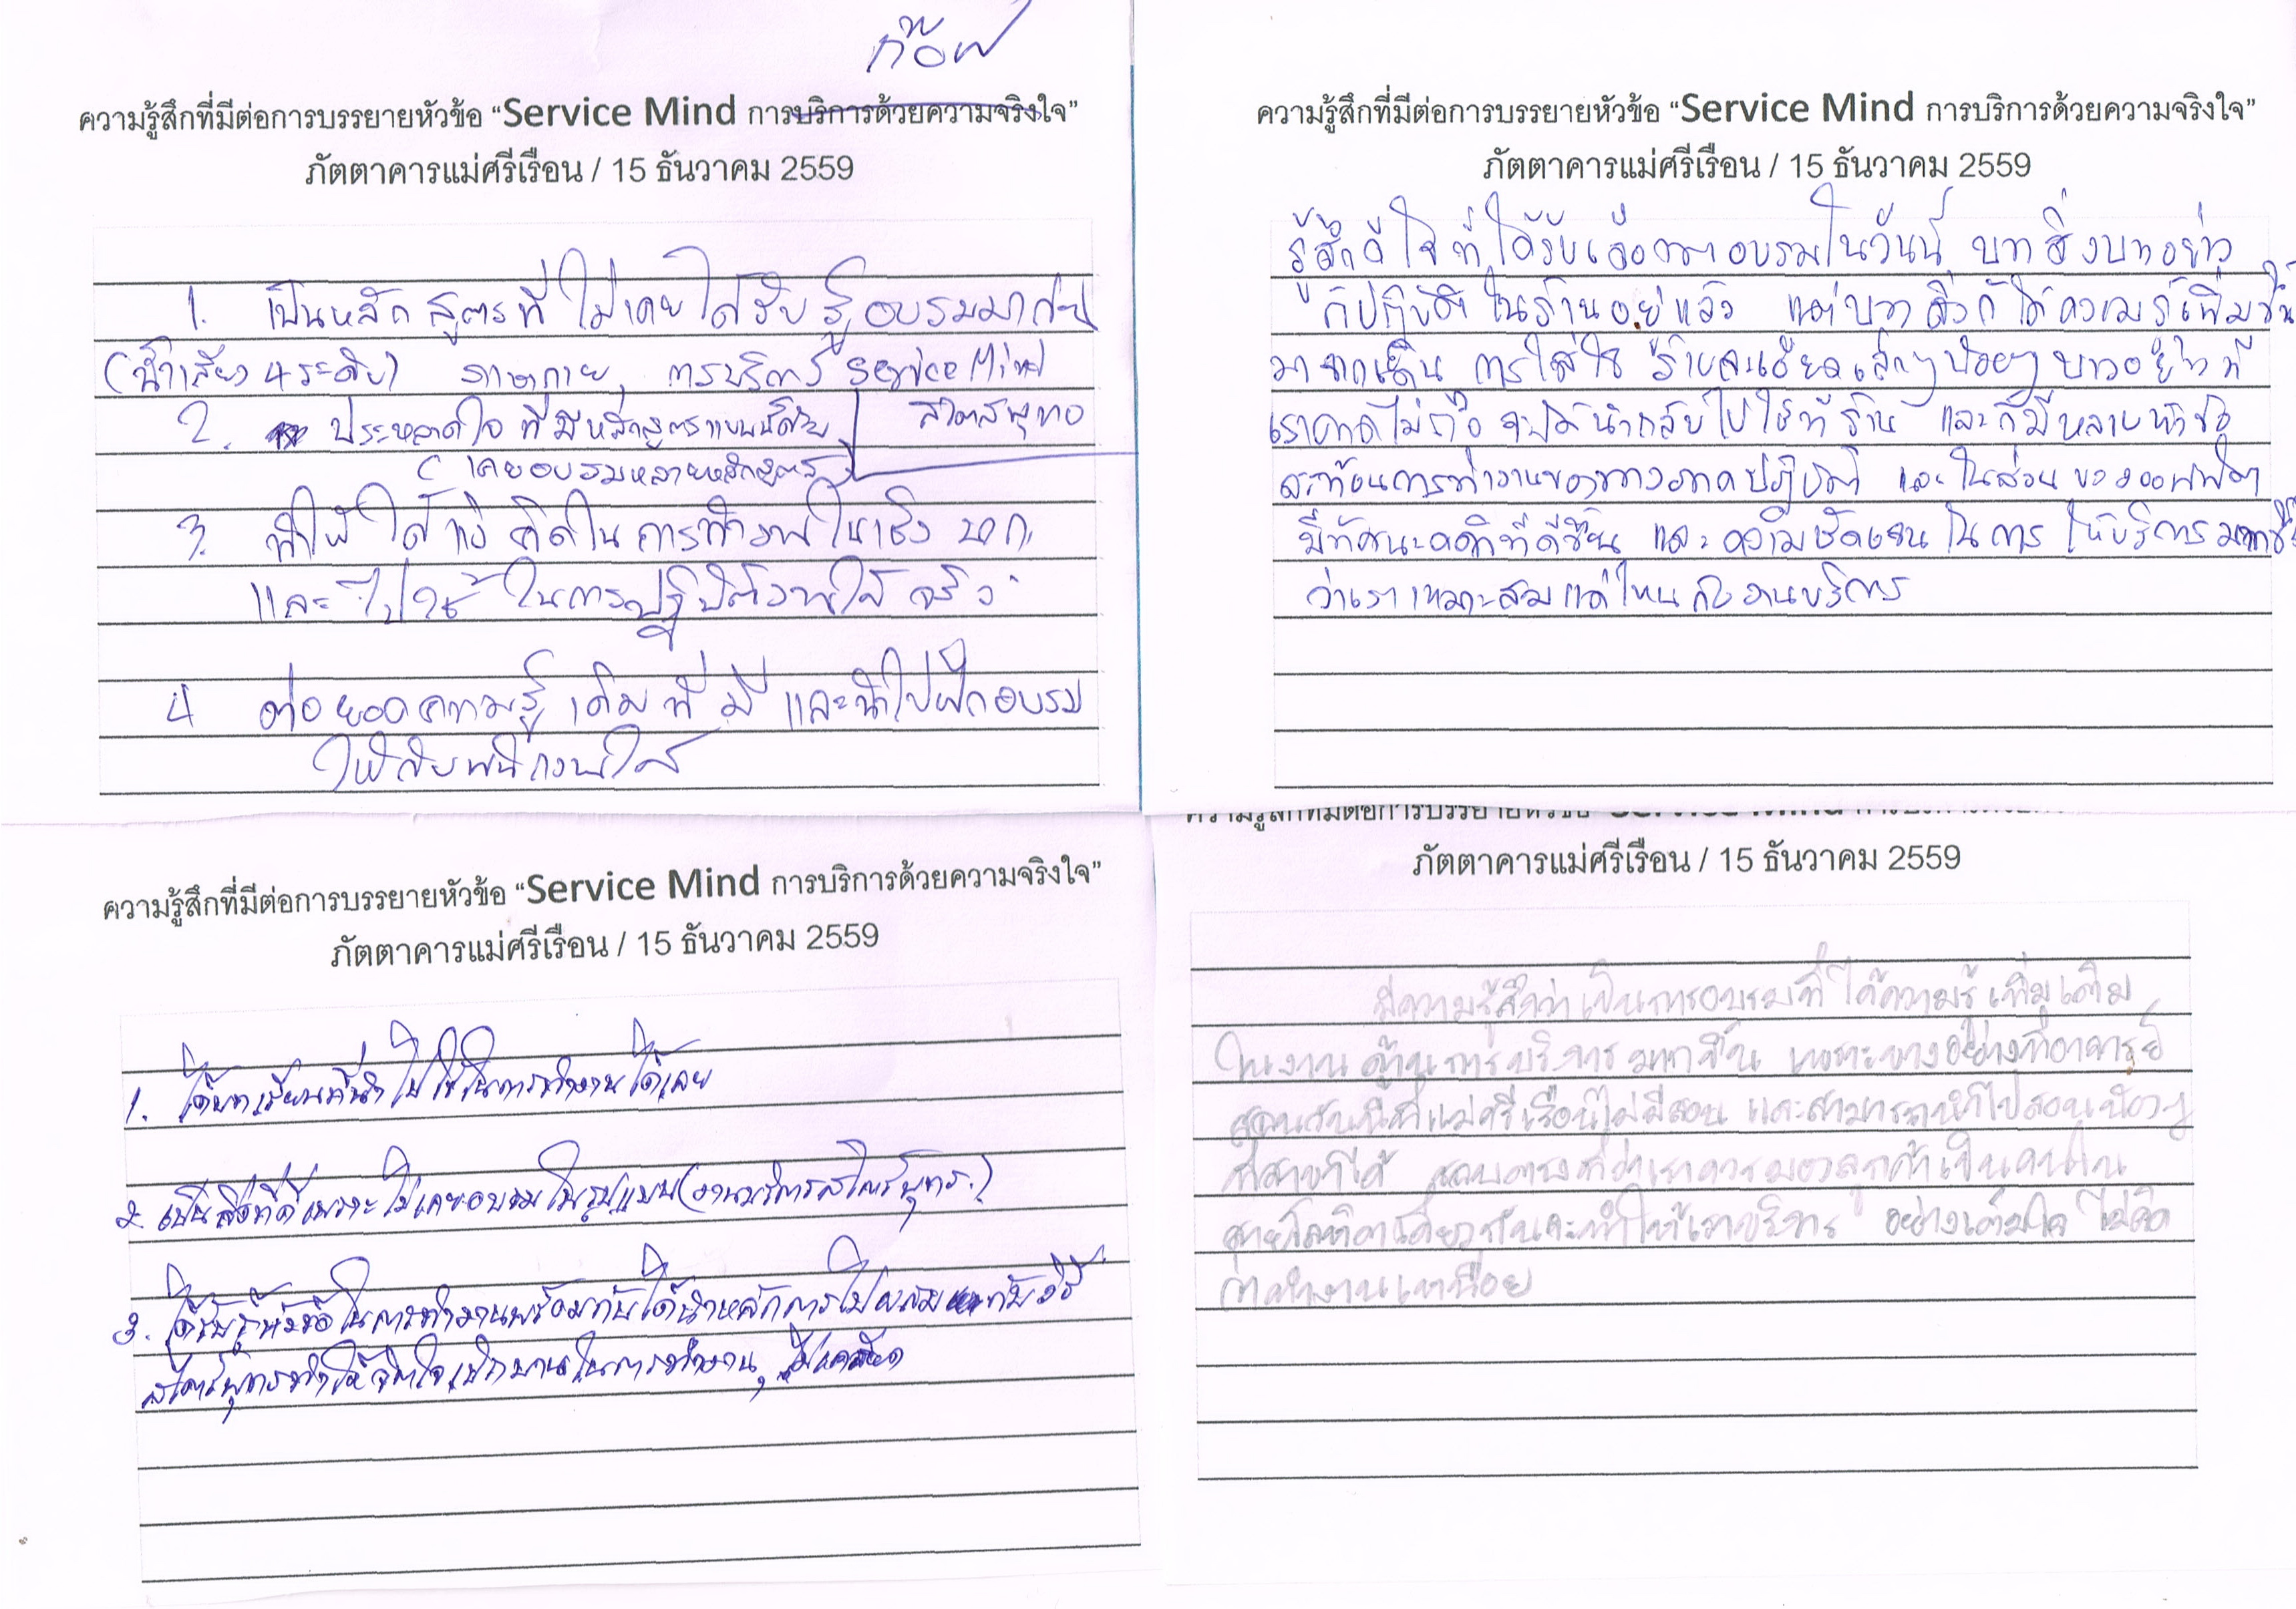 ก๊อฟ
ความรู้สึกที่มีต่อการบรรยายหัวข้อ “Service Mind การบริการด้วยความจริงใจ”
ภัตตาคารแม่ศรีเรือน / 15 ธันวาคม 2559
1. เป็นหลักสูตรที่ไม่เคยได้รับรู้อบรมมาก่อน
(น้ำเสียง 4 ระดับ) ภาษากาย, การบริการ Service Mind
2. ประหลาดใจที่มีหลักสูตรแบบนี้ด้วย สไตล์พุทธ
(เคยอบรมหลายหลักสูตร)
3. ทำให้ได้แง่คิดในการทำงานในเชิงบวก
และไปใช้ในการปฏิบัติงานได้จริง
4 ต่อยอดความรู้เดิมที่มี และนำไปฝึกอบรม
ให้กับพนักงานได้
ความรู้สึกที่มีต่อการบรรยายหัวข้อ “Service Mind การบริการด้วยความจริงใจ”
ภัตตาคารแม่ศรีเรือน / 15 ธันวาคม 2559
รู้สึกดีใจที่ได้รับเลือกมาอบรมในวันนี้ บางสิ่งบางอย่าง
ก็ปฏิบัติในร้านอยู่แล้ว แต่บางสิ่งก็ได้ความรู้เพิ่มขึ้น
มากเดิน การใส่ใจ รายละเอียดเล็กๆน้อยๆ บางอย่างที่
เราคาดไม่ถึง จะได้นำกลับไปใช้ที่ร้าน และก็มีหลายหัวข้อ
สะท้อนการทำงานของทางภาคปฏิบัติ และในส่วนของออฟฟิต
มีทัศนะคติที่ดีขึ้น และความชัดเจนในการให้บริการมากขึ้น
ว่าเราเหมาะสมแค่ไหนกับงานบริการ
ความรู้สึกที่มีต่อการบรรยายหัวข้อ “Service Mind การบริการด้วยความจริงใจ”
ภัตตาคารแม่ศรีเรือน / 15 ธันวาคม 2559
1. ได้บทเรียนที่นำไปใช้ในการทำงานได้เลย
2. เป็นสิ่งที่ดีเพราะไม่เคยอบรมในรูปแบบ (งานบริการสไตร์พุทธ.)
3. ได้รับรู้หัวข้อในการทำงานพร้อมกับได้นำหลักการไปผสมกับวิธี
สไตร์พุทธทำให้จิตใจเบิกบานในการทำงาน, ไม่เครียด
ความรู้สึกที่มีต่อการบรรยายหัวข้อ “Service Mind
ภัตตาคารแม่ศรีเรือน / 15 ธันวาคม 2559
มีความรู้สึกว่าเป็นการอบรมที่ได้ความรู้เพิ่มเติม
ในงานด้านการบริการมากขึ้น เพราะบางอย่างที่อาจารย์
สอนวันนี้ที่แม่ศรีเรือนไม่มีสอน และสามารถนำไปสอนน้องๆ
ที่สาขาได้ ชอบตรงที่ว่าเราควรมองลูกค้าเป็นคนใน
สายโลหิตเดียวกันจะทำให้เราบริการ อย่างเต็มใจ ไม่คิด
ว่าทำงานเหนื่อย